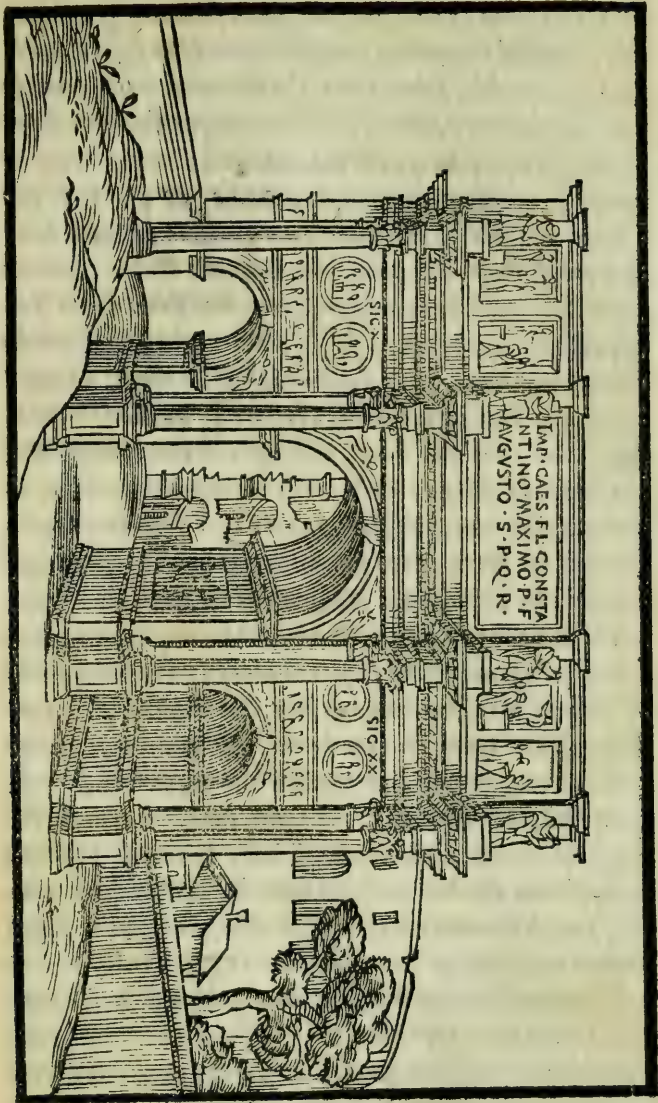 IMP · CAES · FL · CONSTA
NTINO · MAXIMO · P · F
AVGVSTO · S · P · Q · R ·
SIC X
SIC XX